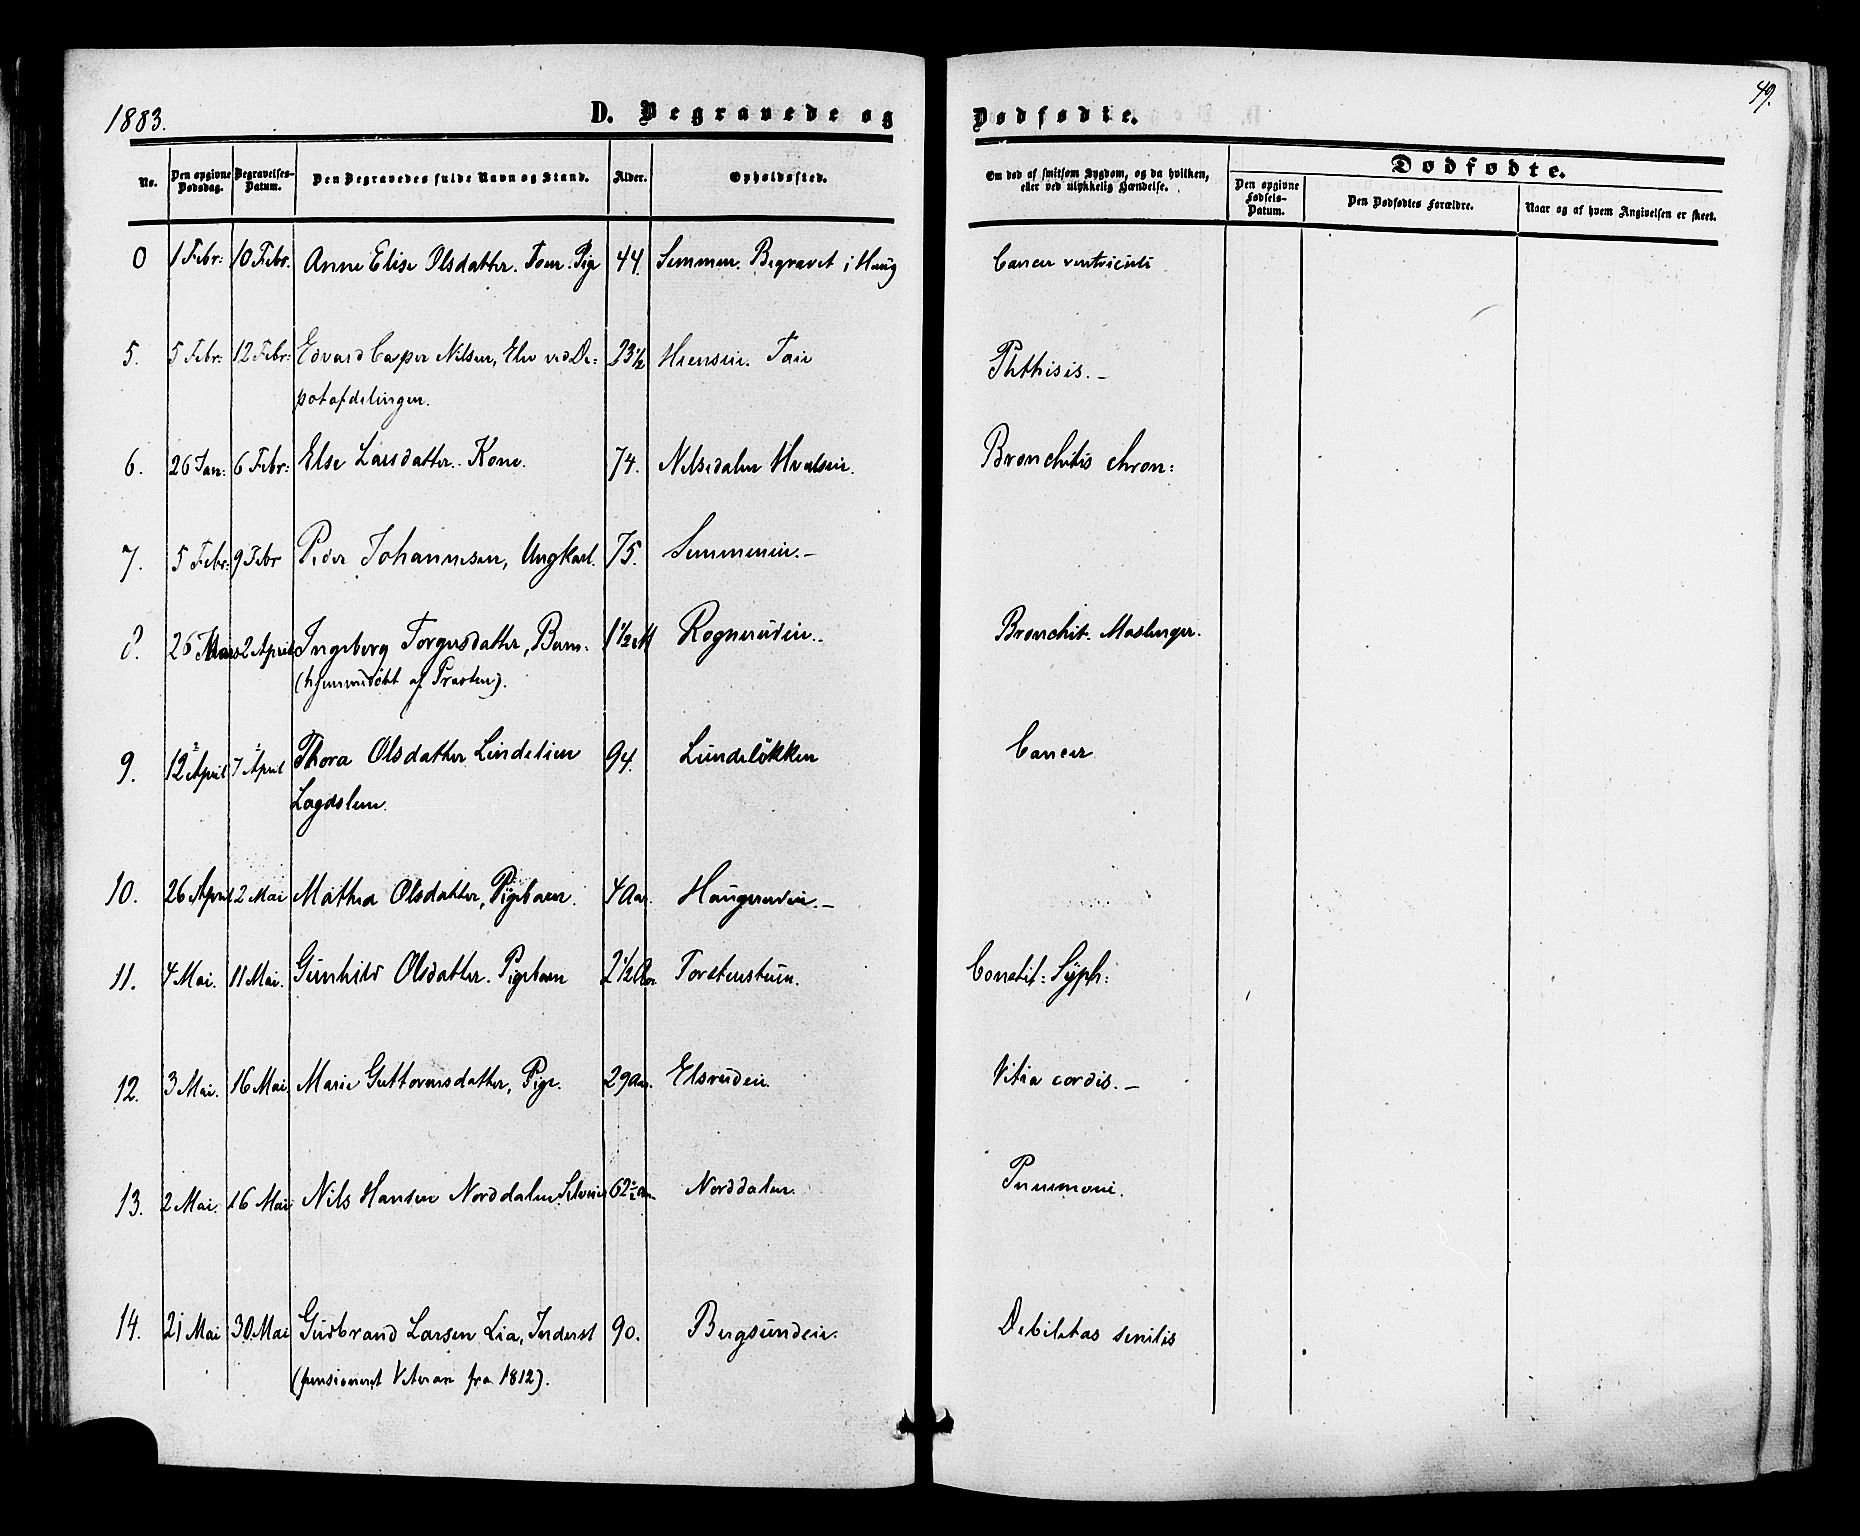 1883.
D. Begravede og Dødfødte.
49.
No.
Den opgivne Dødsdag.
Begravelses-Datum.
Den Begravedes fulde Navn og Stand.
Alder.
Opholdssted.
Om død af smitsom Sygdom, og da hvilken, eller ved ulykkelig Hændelse.
Dødfødte.
Den opgivne Fødsels-Datum.
Den Dødfødtes Forældre.
Naar og af hvem Angivelsen er skeet.
0 1 Febr: 10 Febr. Anne Elise Olsdatter. Pig 44. Semmen. Begravet i Haug Cancer ventriculi
5. 5 Febr: 12 Febr: Edvard Casper Nilsen, Elev ved De- 23 1/2 Hiensein. Phthisis.-
potafdelingen.
6. 26 Jan: 6 Febr: Else Larsdatter. Kone. 74. Nilsedalen Bronchitis chron:
7. 5 Febr: 9 Febr Peder Johannesen, Ungkarl. 75. Semmeneie.-
8. 26 Mars 2 April Ingeborg Torgersdatter, Barn. 1 1/2 M Rognerudeie. Bronchit.
(hjemmedøbt af Præsten).
9. 12 April 7 April Thora Olsdatter Lindelien 94. Lundeløkken Cancer
Lægdslem.
10. 26 April 2 Mai Mathea Olsdatter, Pigebarn. 4 Aar. Haugerudeie.-
11. 4 Mai. 11 Mai. Gunhild Olsdatter. Pigebarn 2 1/2 Aar Torstenstuen. Constit: Syph:
12. 3 Mai. 16 Mai. Marie Guttormsdatter, Pige. 29 Aar. Elsrudeie Vitia cordis.-
13. 2 Mai. 16 Mai Nils Hansen Norddalen Selveier 62 1/2 Aar Norddalen. Pneumoni.
14. 21 Mai 30 Mai Gudbrand Larsen Lia, Inderst 90. Bergsundeie. Debilitas senilis
(pensioneret Veteran fra 1812).